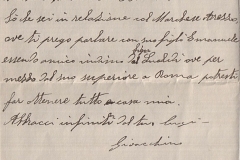 Io te sei in relazione col Marchese Arezzo,
ove ti prego parlare con suo figlio Emanuele
essendo amico intimo del Lucidi ove per
mezzo del suo superiore a Roma potresti
far ottenere tutto a casa mia.
Abbracci infiniti dal tuo
Gioacchino